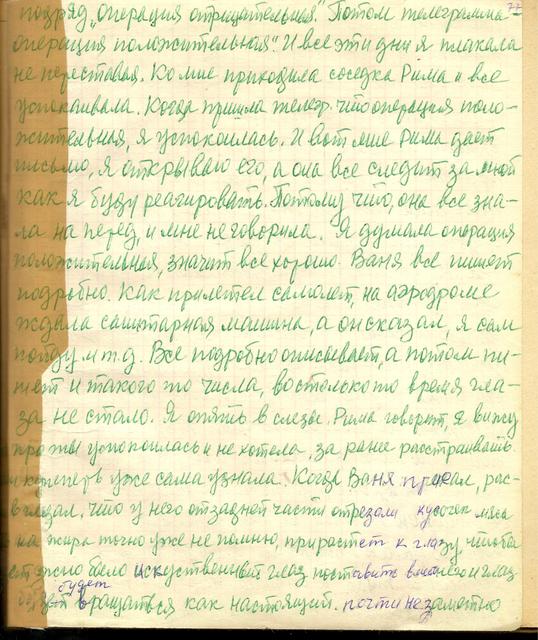 77
подряд „операция отрицательная". Потом телеграмма
операция положительная". И все эти дни я плакала
не переставая. Ко мне приходила соседка Рима и все
успокаивала. Когда пришла телегр. что операция поло-
жительная, я успокоилась. И вот мне Рима дает
письмо, я открываю его, а она все следит за мной
как я буду реагировать. Потому что, она все зна-
ла на перед, и мне не говорила. Я думала операция
положительная, значит все хорошо. Ваня все пишет
подробно. Как прилетел самолет, на аэродроме
ждала санитарная машина, а он сказал, я сам
пойду и т.д. Все подробно описывает, а потом пи-
шет и такого то числа, во столько то время гла-
за не стало. Я опять в слезы. Рима говорит, я вижу
что ты успокоилась и не хотела, за ранее расстраивать
и теперь уже сама узнала. Когда Ваня приехал, рас-
сказал, что у него от задней части отрезали кусочек мяса
на жира точно уже не помню, прирастет к глазу, чтобы
можно было искуственный глаз поставить и глаз
будет вращаться как настоящий. почти незаметно